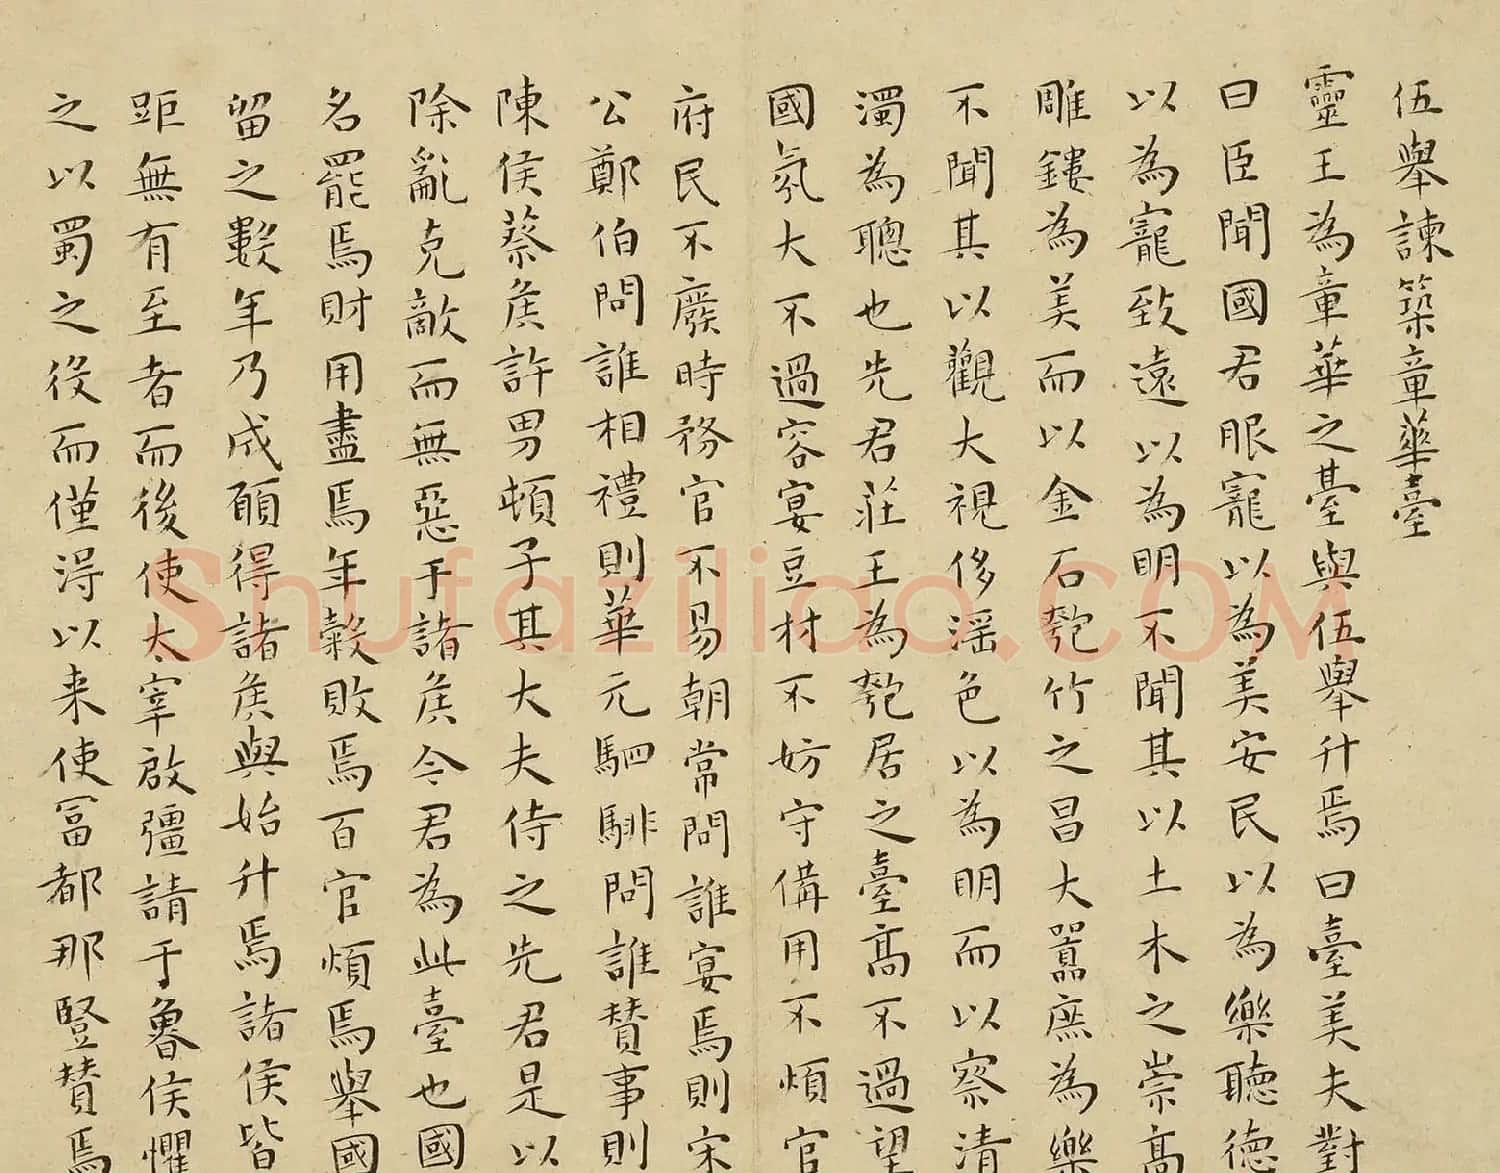 伍舉諫築章華臺
靈王為章華之臺與伍舉升焉曰臺美夫對
曰臣聞國君服寵以為美安民以為樂聽德
以為寵致遠以為明不聞其以土木之崇高
雕鏤為美而以金石匏竹之昌大囂庶為樂
不聞其以觀大視侈滛色以為明而以察清
濁為聰也先君莊王為匏居之臺高不過望
國氛大不過容宴豆材不妨守備用不煩官
府民不廢時務官不易朝常問誰宴焉則宋
公鄭伯問誰相禮則華元駟騑問誰贊事則
陳侯蔡矦許男頓子其大夫侍之先君是以
除亂克敵而無惡于諸矦今君為此臺也國
名罷焉財用盡焉年穀敗焉百官煩焉舉國
留之數年乃成願得諸矦與始升焉諸侯皆
距無有至者而後使太宰啟彊請于魯侯懼
之以蜀之役而僅淂以来使冨都那豎贊焉
Shufaziliao.COM